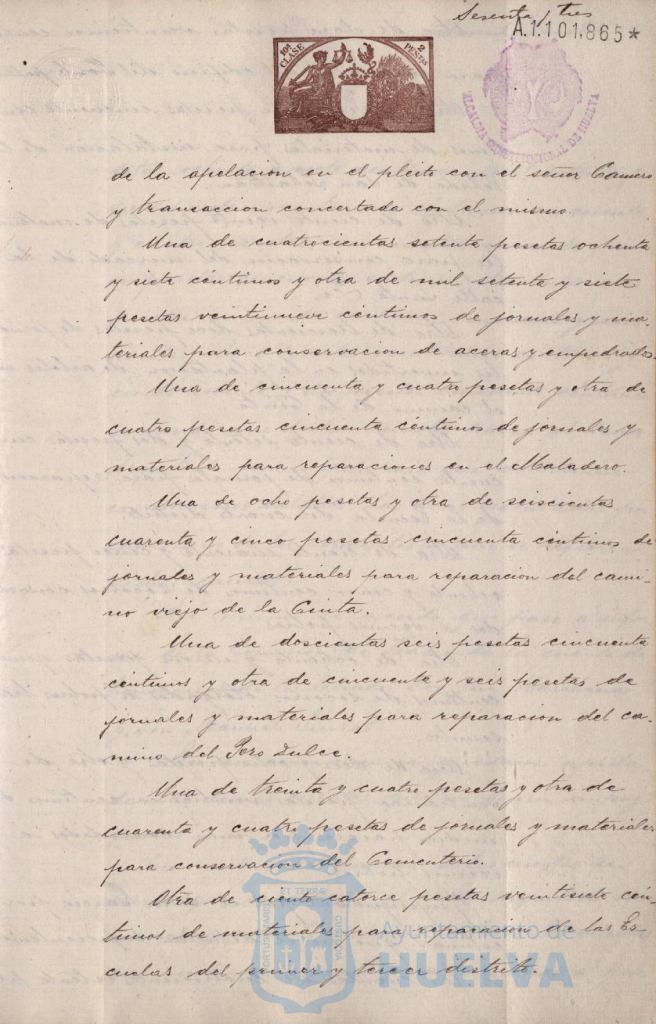 Sesenta y tres
A.1.101.865*
10ª CLASE
2 PESETAS
ALCALDIA CONSTITUCIONAL DE HUELVA
de la apelacion en el pleito con el señor
y transaccion concertada con el mismo.
Una de cuatrocientas setenta pesetas ochenta
y siete céntimos y otra de mil setenta y siete
pesetas veintinueve céntimos de jornales y ma-
teriales para conservacion de aceras y empedrados.
Una de cincuenta y cuatro pesetas y otra de
cuatro pesetas cincuenta céntimos de jornales y
materiales para reparaciones en el Matadero.
Una de ocho pesetas y otra de seiscientas
cuarenta y cinco pesetas cincuenta céntimos de
jornales y materiales para reparacion del cami-
no viejo de la Cinta.
Una de doscientas seis pesetas cincuenta
céntimos y otra de cincuenta y seis pesetas de
jornales y materiales para reparacion del ca-
mino del Pozo Dulce.
Una de treinta y cuatro pesetas y otra de
cuarenta y cuatro pesetas de jornales y materiales
para conservacion del Cementerio.
Otra de ciento catorce pesetas veintisiete cén-
timos de materiales para reparacion de las Es-
cuelas del primer y tercer distrito.
PORTUS MARIS ET TERRAE CUSTODIA
Ayuntamiento de
HUELVA